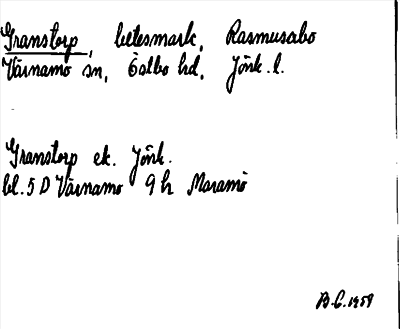 Granstorp, betesmark, Rasmusabo
Värnamo sn, Östbo hd, Jönk. l.
Granstorp ek. Jönk.
bl. 5 D Värnamo 9 h Maramö
B.C. 1959